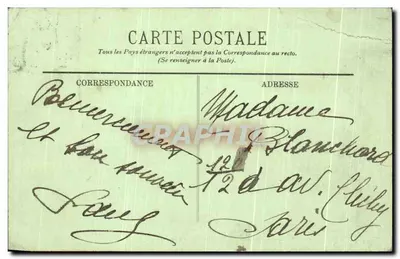 CARTE POSTALE
Tous les Pays étrangers n'acceptent pas la Correspondance au recto.
(Se renseigner à la Poste).
CORRESPONDANCE
ADRESSE
et bon souvenir
Madame
Blanchard
12 av. Clichy
Paris
CPAPHIL